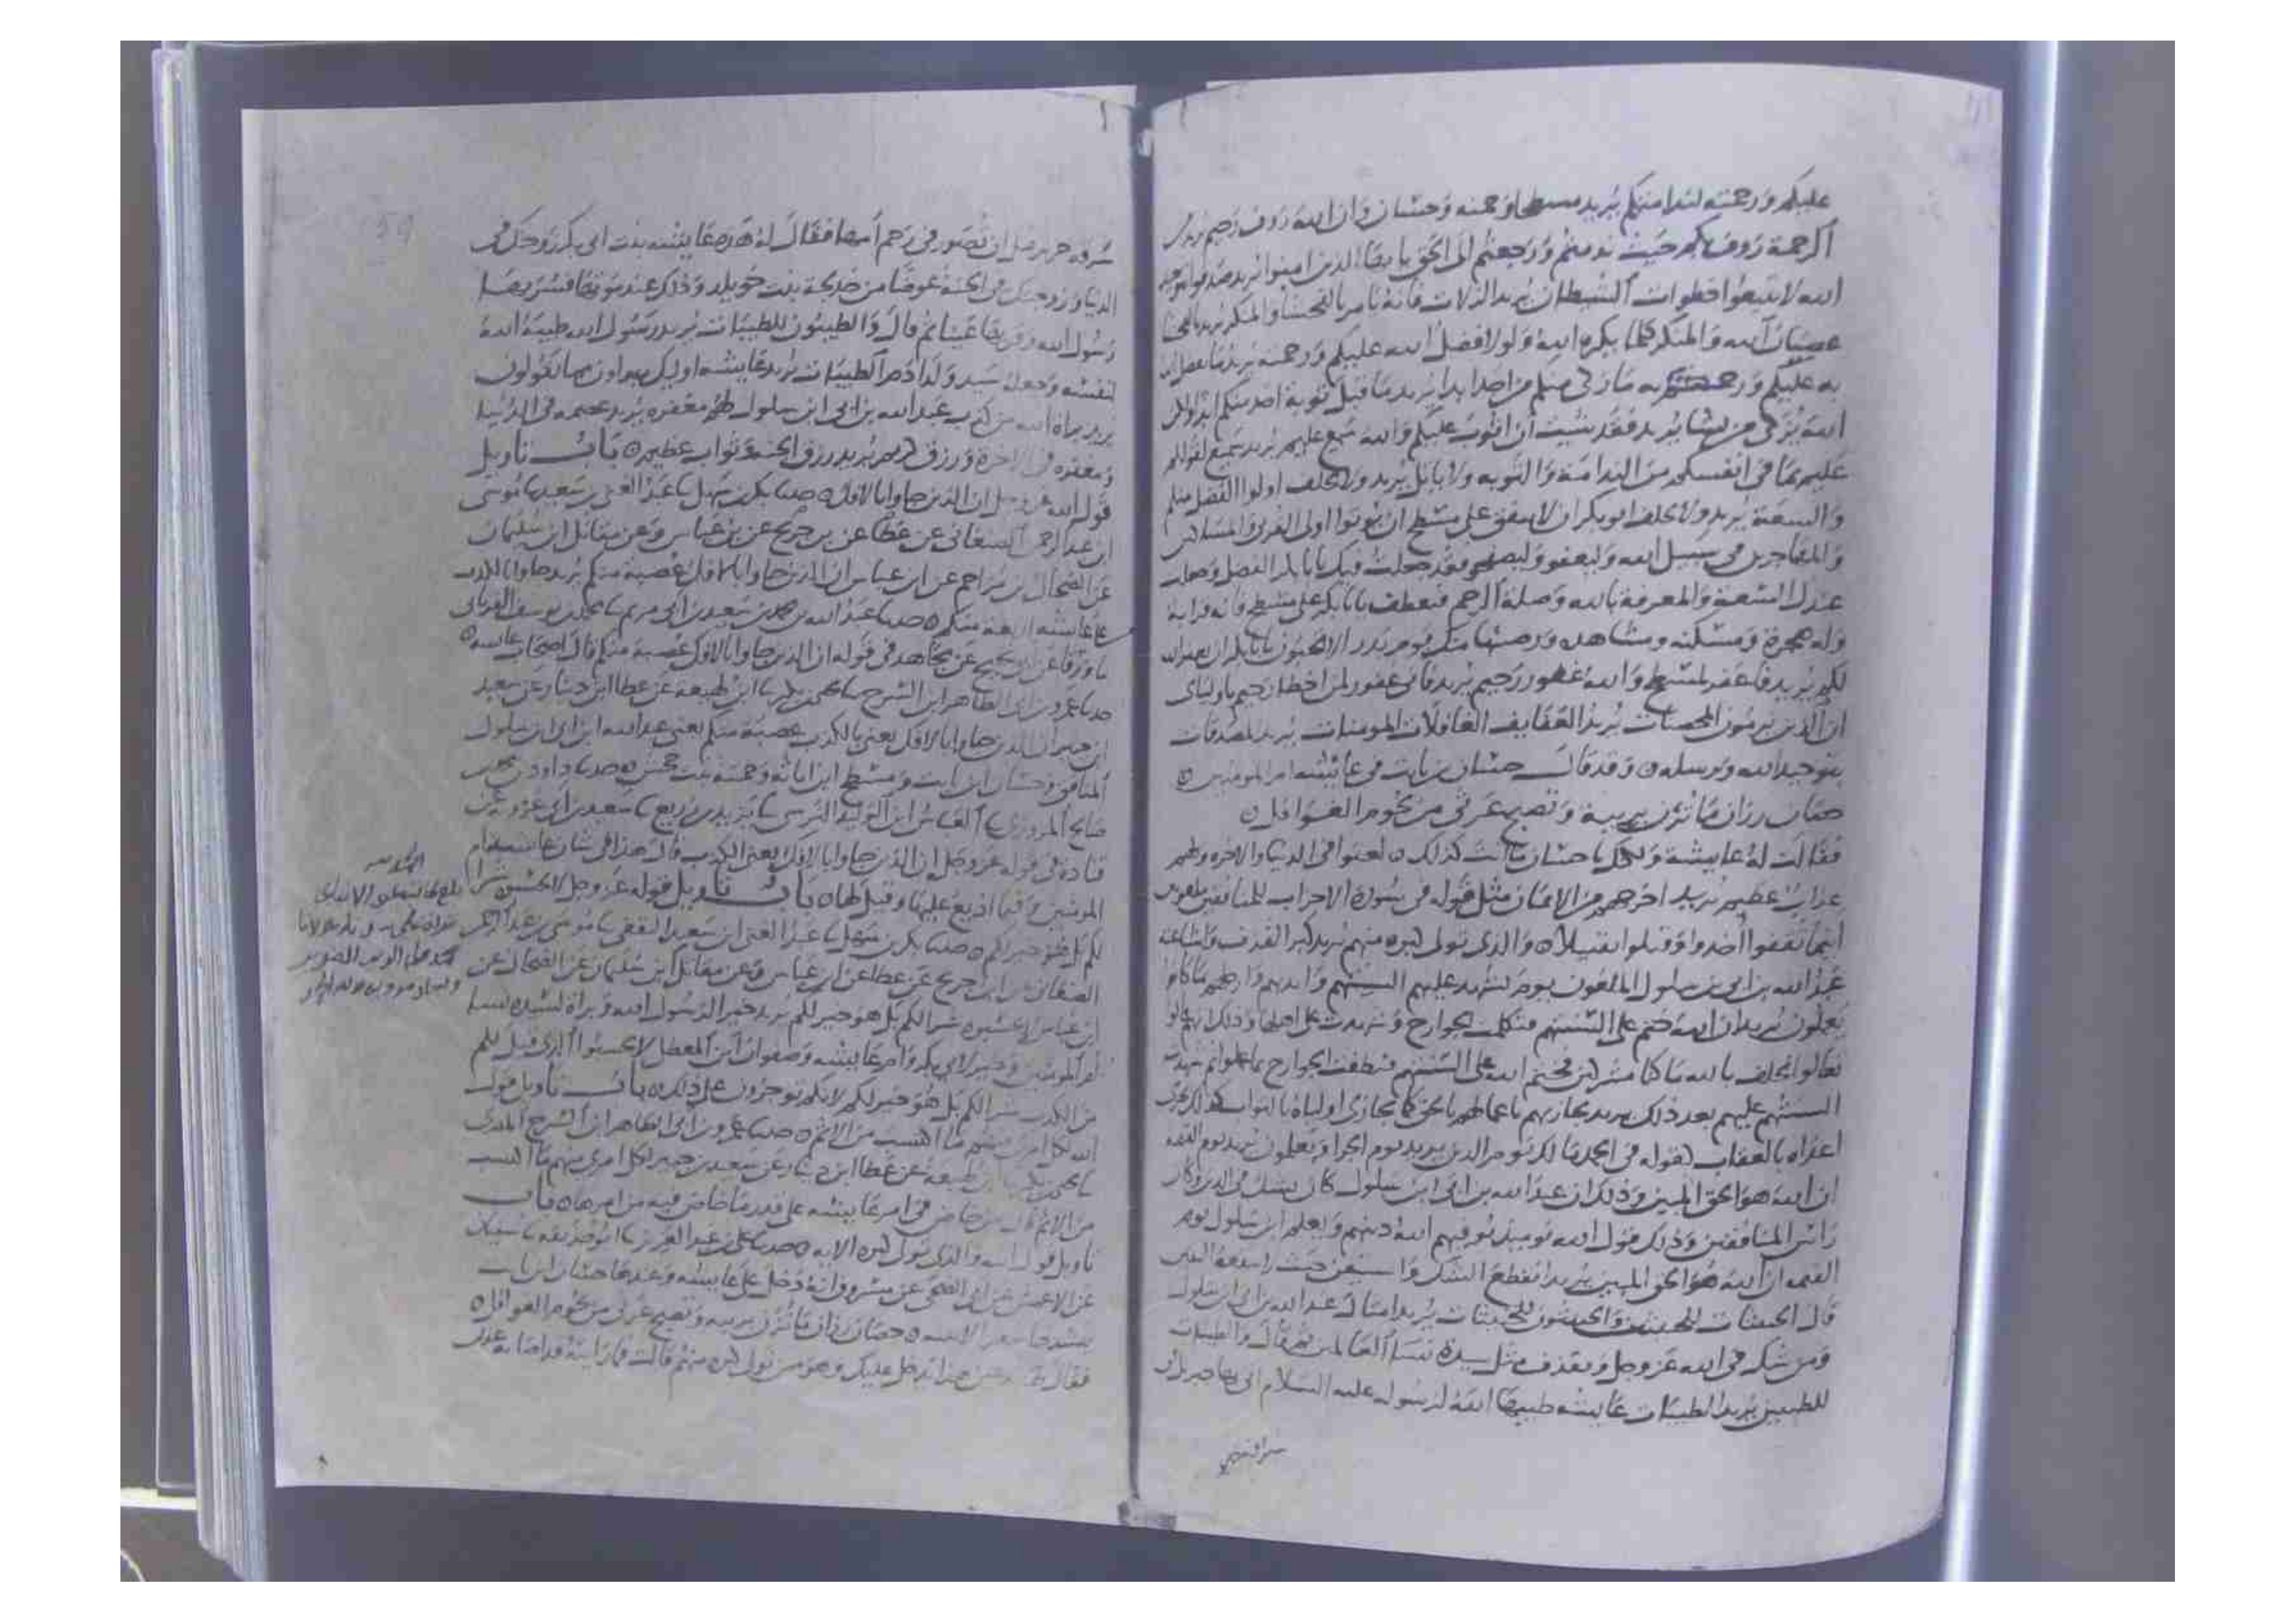 عليكم ورحمته لندا منكم يريد مسطحا وحمنه وحسان وان الله رووف رحيم يريد
الرحمة رووف بكم حيث ندمتم ورجعتم الى الحق يا ايها الذين امنوا يريد صدقوا
الله لا تتبعوا خطوات الشيطان يريد الزلات فانه يامر بالفحشا والمنكر يريد بالفحشا
عصيان الله والمنكر كلما يكره الله ولولا فضل الله عليكم ورحمته يريد ما تفضل الله
به عليكم ورحمته ما زكى منكم من احد ابدا يريد ما قبل توبة احد منكم ابدا ولكن
الله يزكي من يشا يريد فقد شيت ان اتوب عليكم والله سميع عليم يريد سميع لقولكم
عليم بما في انفسكم من الندامة والتوبه ولا ياتل يريد ولا يحلف اولوا الفضل منكم
والسعة يريد ولا يحلف ابو بكر ان لا ينفق على مسطح ان يوتوا اولى القربى والمساكين
والمهاجرين في سبيل الله وليعفو وليصفحو فقد جعلت فيك يابا بكر الفضل وجعلت
عندك السعة والمعرفة بالله وصلة الرحم فتعطف يابا بكر على مسطح فانه قرابة
وله هجرة ومسكنه ومشاهده ورضيتها منك يوم بدر الا تحبون يابا بكر ان يغفر الله
لكم يريد فاغفر لمسطح والله غفور رحيم يريد فاني غفور لمن اخطا رحيم باوليائي
ان الذين يرمون المحصنات يريد العفايف الغافلات المومنات يريد المصدقات
بتوحيد الله وبرسله ٥ وقد قال حسان بن ثابت في عايشه ام المومنين ٥
حصان رزان ما تزن بريبة وتصبح غرثى من لحوم الغوافل ٥
فقالت له عايشة ولكنك يا حسان ما انت كذلك ٥ لعنوا في الدنيا والاخره ولهم
عذاب عظيم يريد اخرجهم من الايمان مثل قوله في سورة الاحزاب للمنافقين ملعونين
اينما ثقفوا اخذوا وقتلوا تقتيلا ٥ والذي تولى كبره منهم يريد كبر القذف واشاعته
عبد الله بن ابى بن سلول الملعون يوم تشهد عليهم السنتهم وايديهم وارجلهم بما كانوا
يعملون يريد ان الله ختم على السنتهم فتكلمت الجوارح وشهدت على اهلها وذلك انهم قالوا
تعالوا نحلف بالله ما كنا مشركين فختم الله على السنتهم فنطقت الجوارح بما عملوا ثم شهدت
السنتهم عليهم بعد ذلك يريد يجازيهم باعمالهم بالحق كما يجازي اولياه بالثواب كذلك يجزي
اعداه بالعقاب كقوله في الحمد مالك يوم الدين يريد يوم الجزا ويعلمون يريد يوم القيمه
ان الله هو الحق المبين وذلك ان عبد الله بن ابى ابن سلول كان يشك في الدين وكان
راس المنافقين وذلك قول الله يوميذ يوفيهم الله دينهم ويعلم ابن سلول يوم
القيمه ان الله هو الحق المبين يريد انقطع الشك واستيقن حيث لا ينفعه اليقين
قال الخبيثات للخبيثين والخبيثون للخبيثات يريد امثال عبد الله بن ابى ابن سلول
ومن شك في الله عز وجل ويقذف مثل سيدة نسا العالمين ثم قال والطيبات
للطيبين يريد الطيبات عايشه طيبها الله لرسوله عليه السلام اتى بها جبريل في
سرقة حرير قبل ان تصور في رحم امها فقال له هذه عايشه بنت ابى بكر زوجتك في
الدنيا وزوجتك في الجنة عوضا من خديجة بنت خويلد وذلك عند موتها فسر بها
رسول الله وقر بها عينا ثم قال والطيبون للطيبات يريد رسول الله طيبه الله
لنفسه وجعله سيد ولد ادم الطيبات يريد عايشه اوليك مبراون مما يقولون
يريد براه الله من كذب عبد الله بن ابى ابن سلول لهم مغفره يريد عصمه في الدنيا
ومغفره في الاخرة ورزق كريم يريد رزق الجنه وثواب عظيم ٥ باب تاويل
قول الله عز وجل ان الذين جاوا بالافك ٥ حدثنا بكر بن سهل ثنا عبد الغنى بن سعيد ثنا موسى
ابن عبد الرحمن الصنعاني عن عطا عن بن جريج عن بن عباس وعن مقاتل ابن سليمان
عن الضحاك بن مزاحم عن ابن عباس ان الذين جاوا بالافك عصبة منكم يريد جاوا بالكذب
على عايشه اربعة منكم ٥ حدثنا عبد الله بن محمد بن سعيد بن ابى مريم ثنا محمد بن يوسف الفريابى
ثنا ورقا عن بن ابى نجيح عن مجاهد في قوله ان الذين جاوا بالافك عصبة منكم قال اصحاب عايشه ٥
حدثنا عمرو بن ابى الطاهر ابن السرح ثنا يحيى بن بكير ثنا ابن لهيعه عن عطا ابن دينار عن سعيد
ابن جبير ان الذين جاوا بالافك يعني بالكذب عصبة منكم يعني عبد الله ابن ابى ابن سلول
المنافق وحسان ابن ثابت ومسطح ابن اثاثه وحمنة بنت جحش ٥ حدثنا داود بن محمد بن
صالح المروزي ثنا العباس ابن الوليد النرسي ثنا يزيد بن زريع ثنا سعيد بن ابى عروبة عن
قتادة في قوله عز وجل ان الذين جاوا بالافك يعني الكذب قال هذا في شان عايشه ام
المومنين وفيما اذيع عليها وقيل لها ٥ باب تاويل قوله عز وجل لا تحسبوه شرا
لكم بل هو خير لكم ٥ حدثنا بكر بن سهل ثنا عبد الغنى ابن سعيد الثقفي ثنا موسى بن عبد الرحمن
الصنعاني عن ابن جريج عن عطا عن ابن عباس وعن مقاتل ابن سليمان عن الضحاك عن
ابن عباس لا تحسبوه شرا لكم بل هو خير لكم يريد خير الرسول الله وبراة لسيدة نسا
ام المومنين وخير لابي بكر وام عايشه وصفوان ابن المعطل لا تحسبوا الذي قيل لكم
من الكذب شرا لكم بل هو خير لكم لانكم توجرون على ذلك ٥ باب تاويل قول
الله لكل امرى منهم ما اكتسب من الاثم ٥ حدثنا عمرو بن ابى الطاهر ابن السرح المصري
ثنا يحيى بن بكير ثنا ابن لهيعه عن عطا ابن دينار عن سعيد بن جبير لكل امرى منهم ما اكتسب
من الاثم قال من خاض في امر عايشه على قدر ما خاض فيه من امرها ٥ باب
تاويل قول الله والذي تولى كبره الايه ٥ حدثنا على بن عبد العزيز ثنا ابو حذيفه ثنا سفيان
عن الاعمش عن ابى الضحى عن مسروق انه دخل على عايشه وعندها حسان ابن ثابت
ينشدها شعرا حصان رزان ما تزن بريبه وتصبح غرثى من لحوم الغوافل ٥
يدخل عليك وهو من تولى كبره منهم قالت